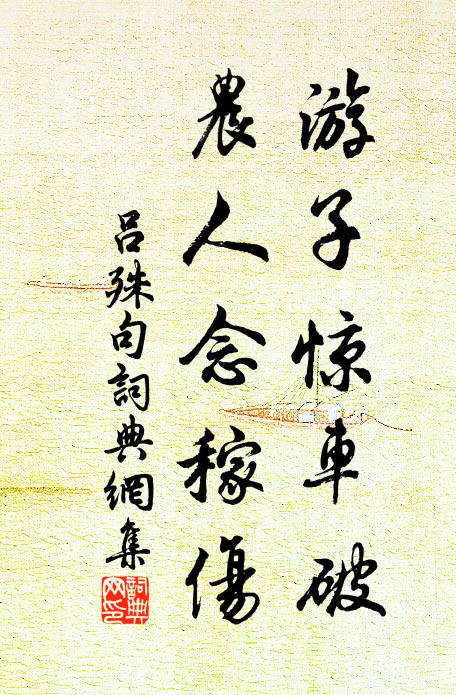 游子惊車破
農人念稼傷
吕殊句詞典網集
詞典
网印